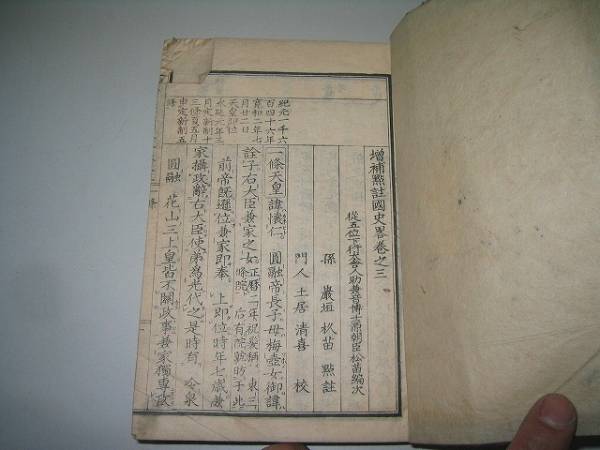 増補點註國史畧卷之三
從五位下行大舍人助兼音博士 朝臣松苗編次
孫 巖垣 杦苗 點註
門人 土居 清喜 校
一條天皇諱懷仁。圓融帝長子。母梅壺女御諱
詮子。右大臣兼家之女。正曆二年祝髮稱東三
條院。后有院號昉于此
前帝既遜位。兼家即奉上即位。時年七歲。兼
家攝政。辭右大臣。使弟為光代之。是時有冷泉
圓融花山三上皇。皆不關政事。兼家獨專政
紀元一千六
百四十六年
寬和二年七
月廿二日
天皇即位
永延元年三
月定新制十
三條夏五月
申定新制五
條